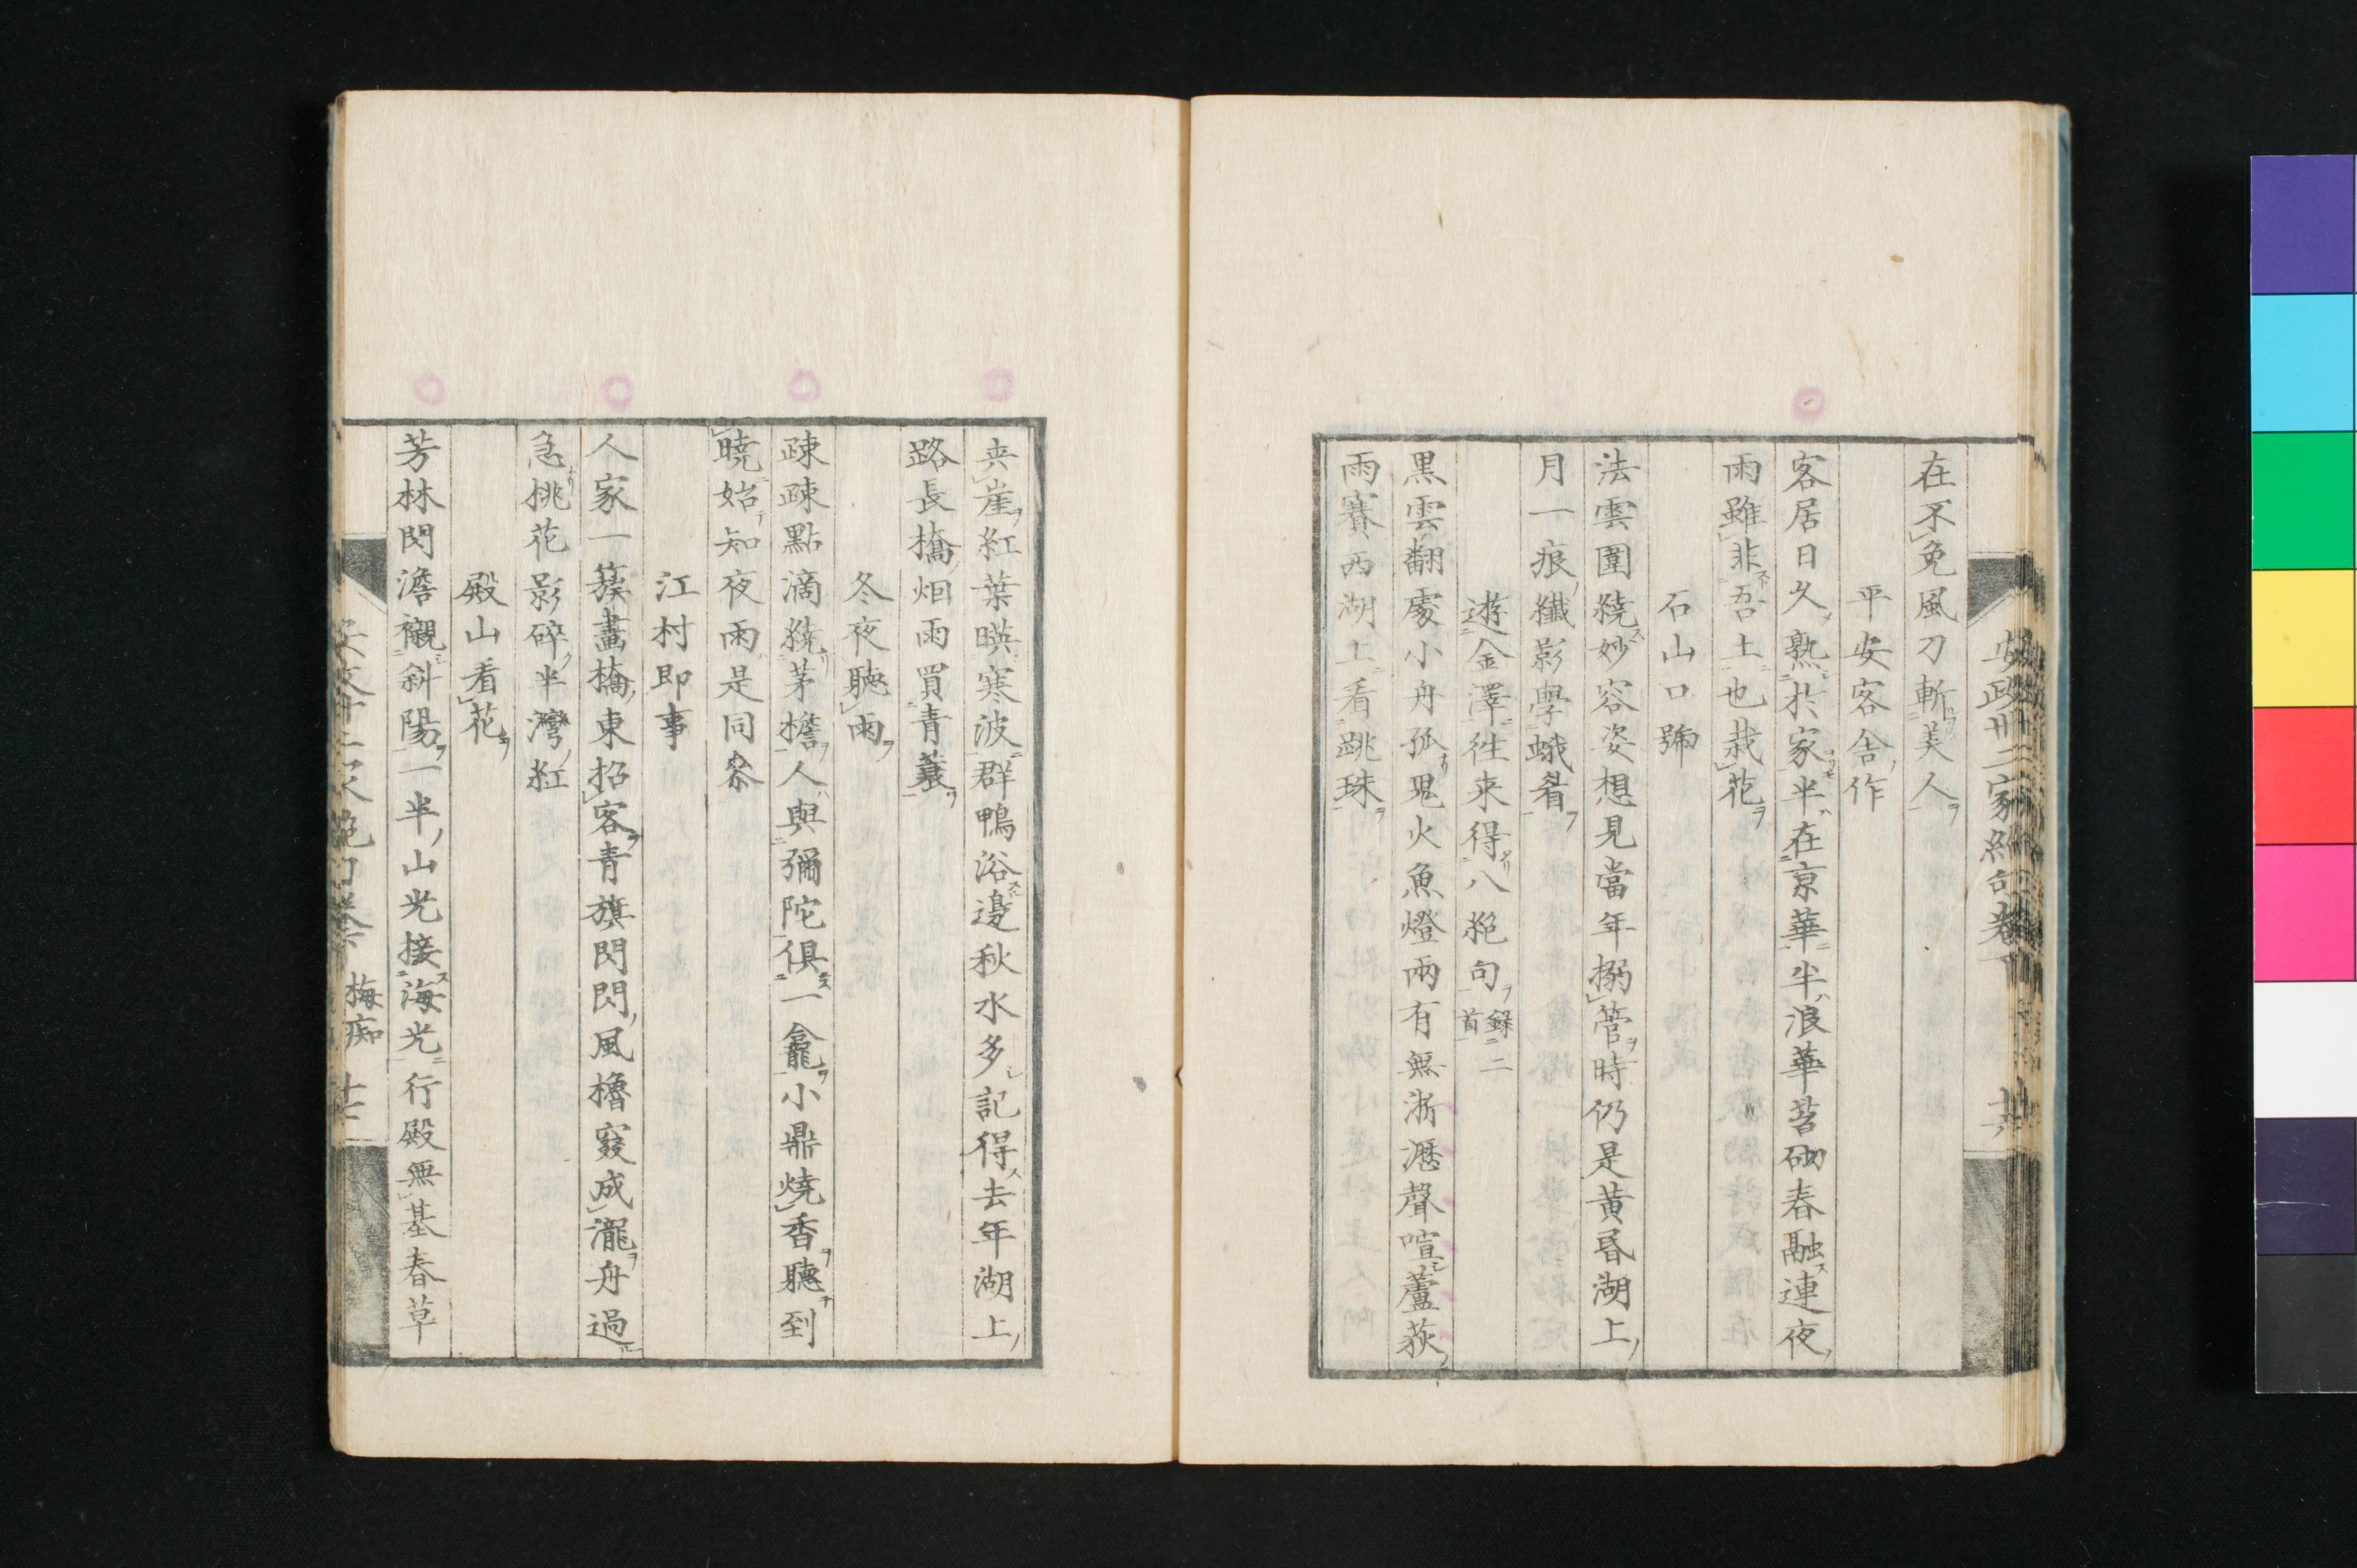 安政卅二家絶句巻下
十六
在不免風刀斬美人
平安客舎作
客居日久熟於家半在京華半浪華苔砌春融連夜
雨雖非吾土也栽花
石山口號
法雲圍繞妙容姿想見當年搦管時仍是黄昏湖上
月一痕纖影學蛾眉
遊金澤徃来得八絶句録二首
黒雲翻處小舟孤鬼火魚燈兩有無淅瀝聲喧蘆荻
雨賽西湖上看跳珠
夾崖紅葉暎寒波群鴨浴邊秋水多記得去年湖上
路長橋烟雨買青蓑
冬夜聽雨
疎疎點滴繞茅檐人與彌陀倶一龕小鼎燒香聽到
曉始知夜雨是同叅
江村即事
人家一簇畫橋東招客青旗閃閃風櫓窽成瀧舟過
急桃花影碎半灣紅
殿山看花
芳林閃澹襯斜陽一半山光接海光行殿無基春草
梅痴